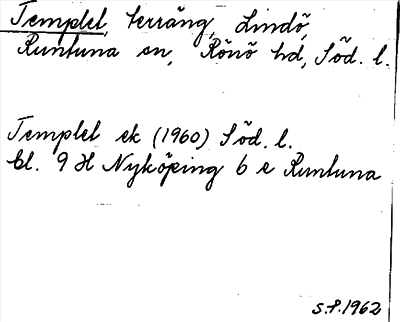 Templet, terräng, Lindö,
Runtuna sn, Rönö hd, Söd. l.
Templet ek (1960) Söd. l.
bl. 9 H Nyköping 6 e Runtuna
S.P. 1962